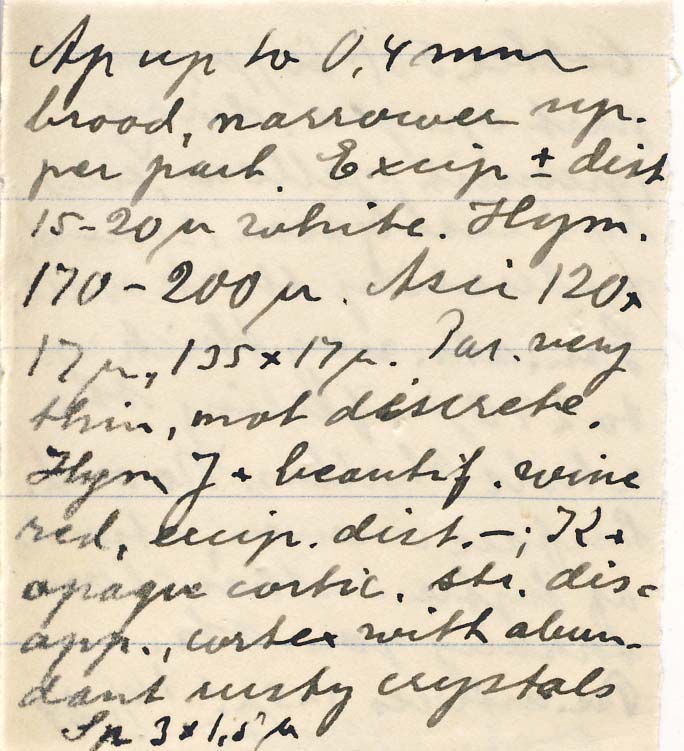 Ap up to 0,4 mm
broad, narrower up-
per part. Excip ± dist
15-20 µ white. Hym.
170 - 200 µ. Asci 120 x
17 µ, 135 x 17 µ. Par. very
thin, not discrete.
Hym J + beautif. wine
red, excip. dist. -; K +
opaque cortic. str. dis-
app., cortex with abun-
dant rusty crystals
Sp 3 x 1,5 µ